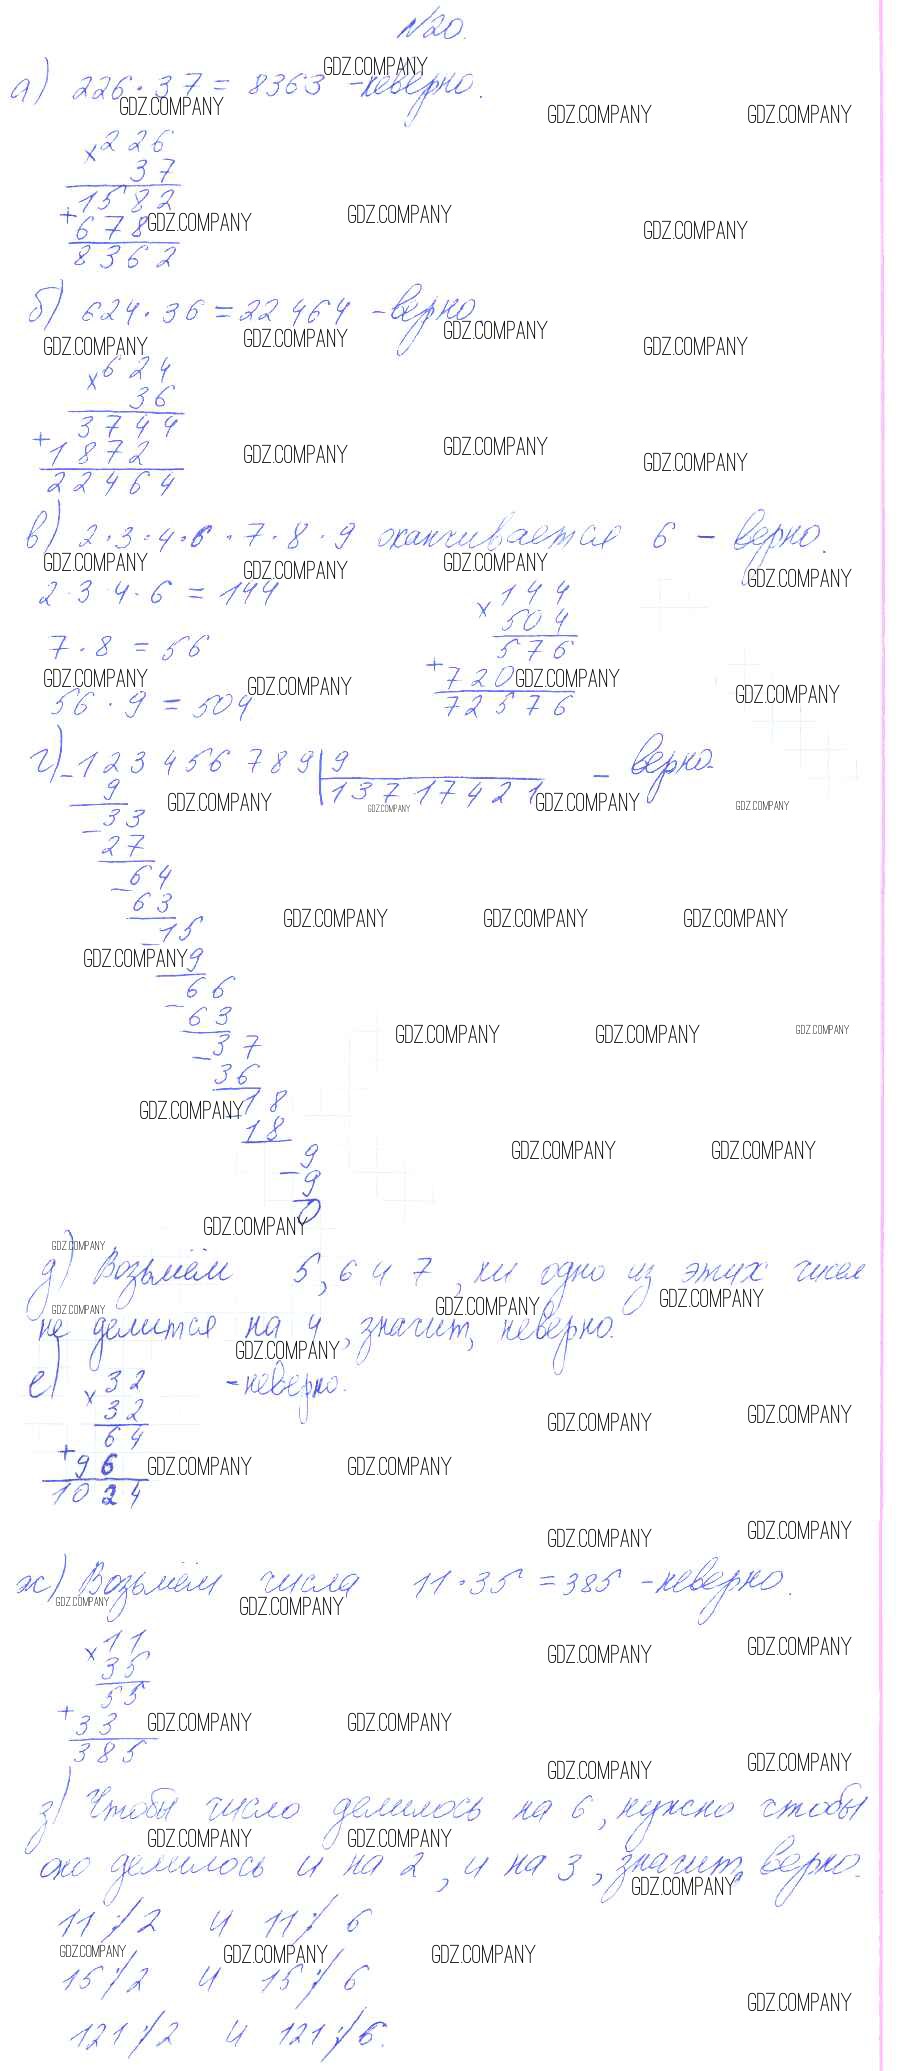 №20.
а) 226·37 = 8363 - неверно.
×226
37
1582
+678
8362
б) 624·36 = 22464 - верно
×624
36
3744
+1872
22464
в) 2·3·4·6·7·8·9 оканчивается 6 - верно.
2·3·4·6 = 144
×144
504
576
+720
72576
7·8 = 56
56·9 = 504
г) -123456789 | 9 - верно.
9 13717421
-33
27
-64
63
-15
9
-66
63
-37
36
-18
18
-9
9
0
д) Возьмём 5, 6 и 7, ни одно из этих чисел
не делится на 4, значит, неверно.
е) ×32 - неверно.
32
64
+96
1024
ж) Возьмём числа 11·35 = 385 - неверно.
×11
35
55
+33
385
з) Чтобы число делилось на 6, нужно чтобы
оно делилось и на 2, и на 3, значит, верно.
11 ⁒ 2 и 11 ⁒ 6
15 ⁒ 2 и 15 ⁒ 6
121 ⁒ 2 и 121 ⁒ 6.
GDZ.COMPANY